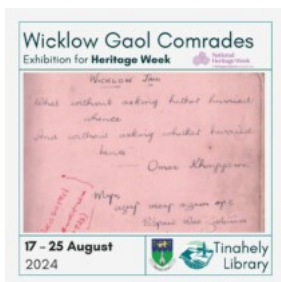 Wicklow Gaol Comrades
Exhibition for Heritage Week
National
Heritage Week
WICKLOW JAIL
What without asking hither hurried
whence
And without asking whither hurried
hence
Omar Khayyam
17 – 25 August
2024
Tinahely
Library